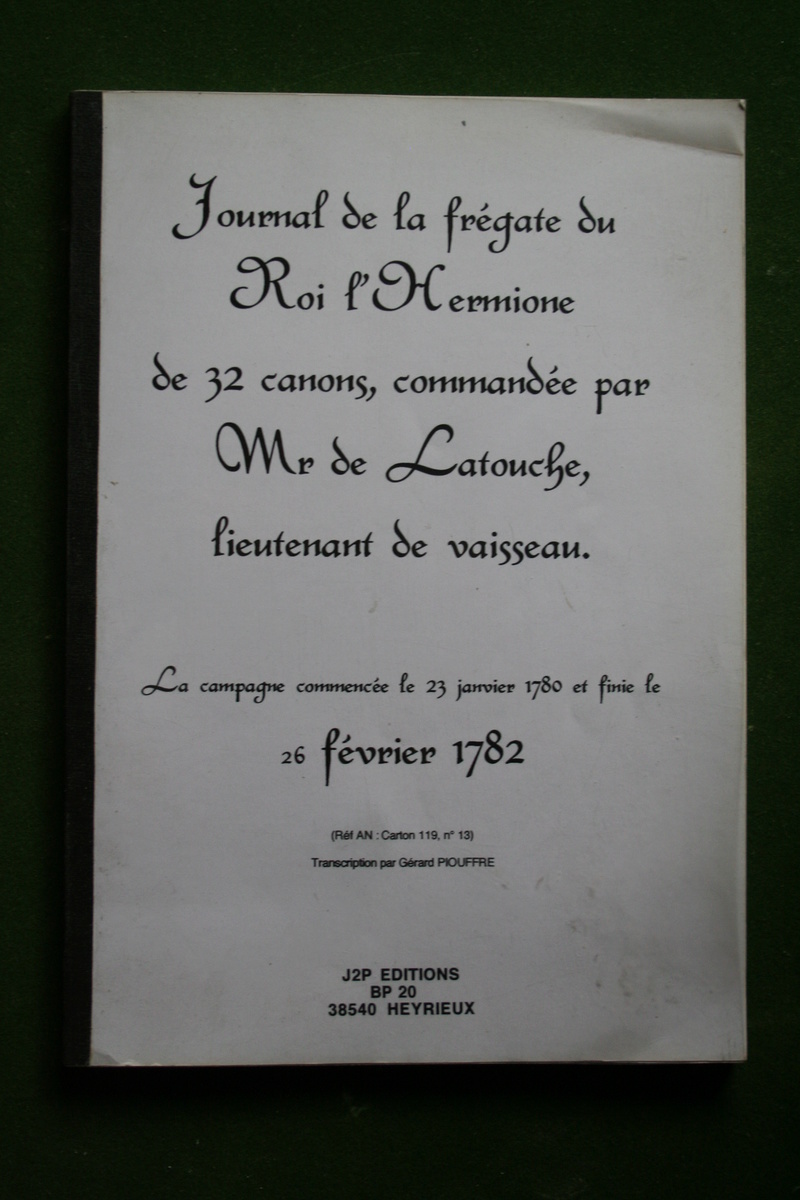 Journal de la frégate du
Roi l'Hermione
de 32 canons, commandée par
Mr de Latouche,
lieutenant de vaisseau.
La campagne commencée le 23 janvier 1780 et finie le
26 février 1782
(Réf AN : Carton 119, n° 13)
Transcription par Gérard PIOUFFRE
J2P EDITIONS
BP 20
38540 HEYRIEUX